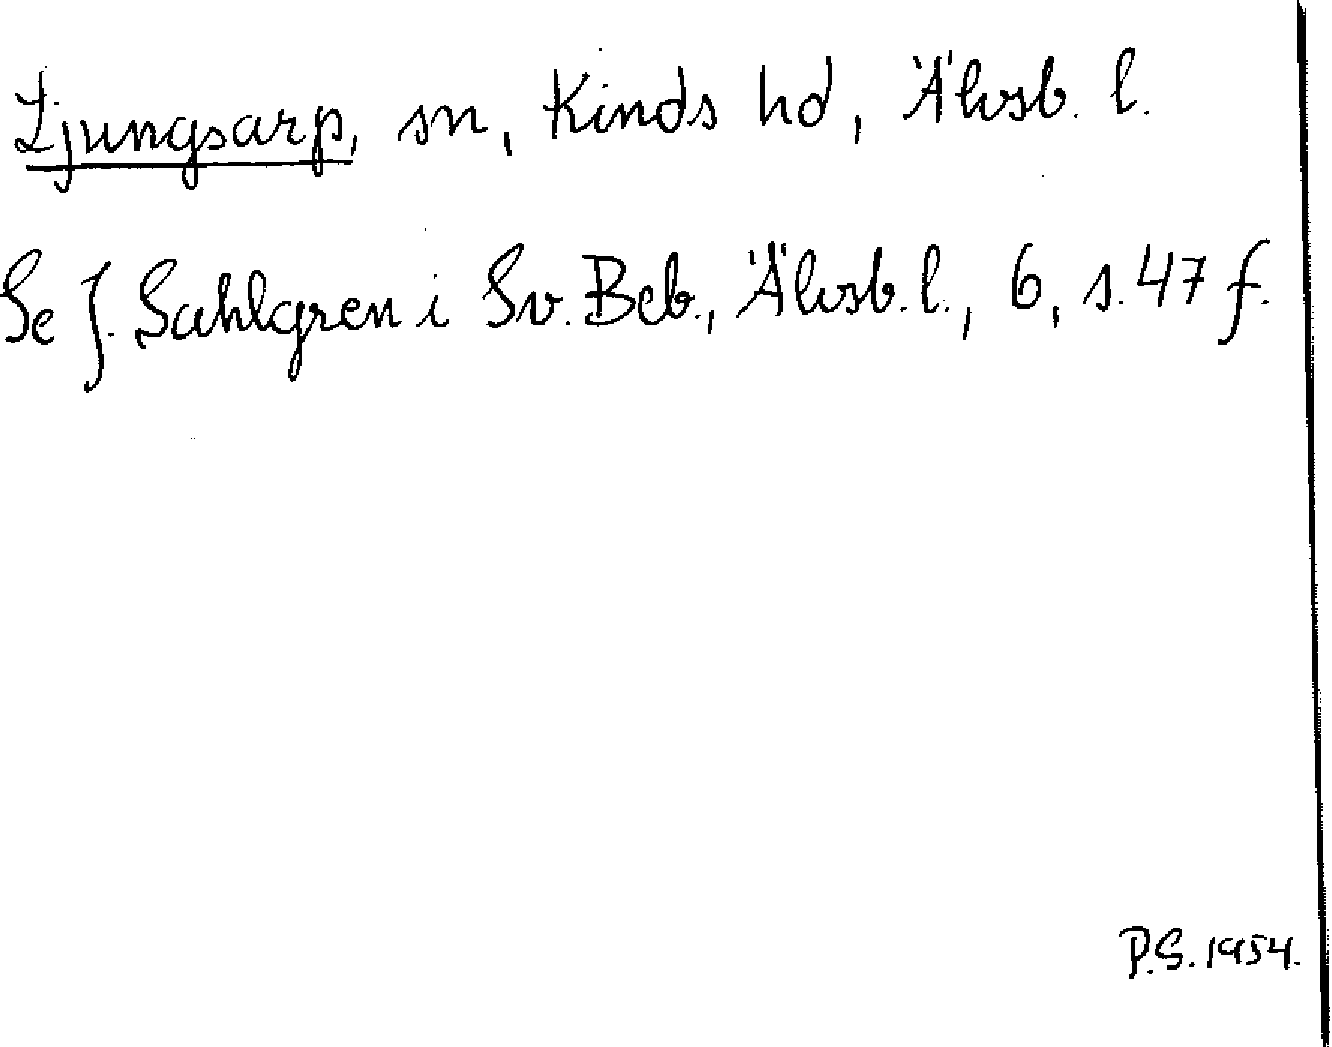 Ljungsarp, sn, Kinds hd, Älvsb. l.
Se J. Sahlgren i Sv. Beb., Älvsb. l., 6, s. 47 f.
P.S. 1954.